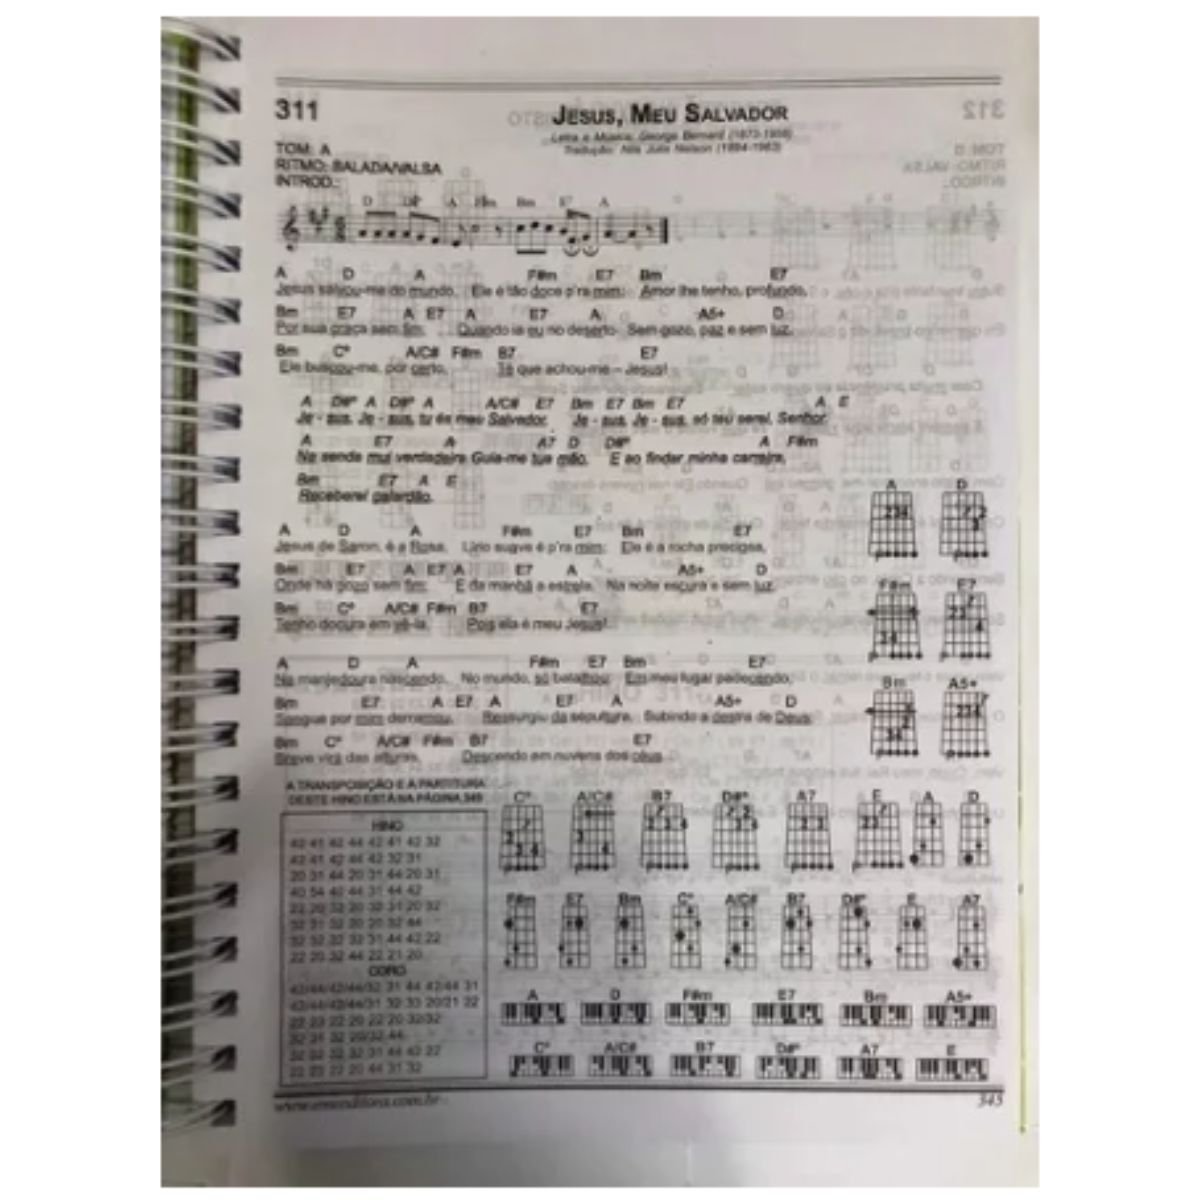 311
JESUS, MEU SALVADOR
Letra e Música: George Bernard (1873-1958)
Tradução: Nils Julio Nelson (1894-1963)
TOM: A
RITMO: BALADA/VALSA
INTROD.:
D D#º A F#m Bm E7 A
A D A F#m E7 Bm E7
Jesus salvou-me do mundo, Ele é tão doce p'ra mim; Amor lhe tenho, profundo,
Bm E7 A E7 A E7 A A5+ D
Por sua graça sem fim; Quando ia eu no deserto Sem gozo, paz e sem luz,
Bm Cº A/C# F#m B7 E7
Ele buscou-me, por certo, Té que achou-me – Jesus!
A D#º A D#º A A/C# E7 Bm E7 Bm E7 A E
Je - sus, Je - sus, tu és meu Salvador, Je - sus, Je - sus, só teu serei, Senhor
A E7 A A7 D D#º A F#m
Na senda mui verdadeira Guia-me tua mão, E ao findar minha carreira,
Bm E7 A E
Receberei galardão.
A D A F#m E7 Bm E7
Jesus de Saron, é a Rosa, Lírio suave é p'ra mim; Ele é a rocha preciosa,
Bm E7 A E7 A E7 A A5+ D
Onde há gozo sem fim; E da manhã a estrela, Na noite escura e sem luz,
Bm Cº A/C# F#m B7 E7
Tenho doçura em vê-la, Pois ela é meu Jesus!
A D A F#m E7 Bm E7
Na manjedoura nascendo, No mundo, só batalhou; Em meu lugar padecendo,
Bm E7 A E7 A E7 A A5+ D
Sangue por mim derramou, Ressurgiu da sepultura, Subindo a destra de Deus;
Bm Cº A/C# F#m B7 E7
Breve virá das alturas, Descendo em nuvens dos céus.
A D
F#m E7
Bm A5+
A TRANSPOSIÇÃO E A PARTITURA
DESTE HINO ESTÁ NA PÁGINA 345
Cº A/C# B7 D#º A7 E A D
HINO
42 41 42 44 42 41 42 32
42 41 42 44 42 32 31
20 31 44 20 31 44 20 31
40 54 40 44 31 44 42
22 20 32 20 32 31 20 32
32 31 32 20 20 32 44
32 32 32 32 31 44 42 22
22 20 32 44 22 21 20
F#m E7 Bm Cº A/C# B7 D#º E A7
CORO
A D F#m E7 Bm A5+
22 22 22 20 22 20 32/32
32 31 32 20/32 44
32 32 32 32 31 44 42 22
22 22 22 20 44 31 32
Cº A/C# B7 D#º A7 E
www.emeditora.com.br
345